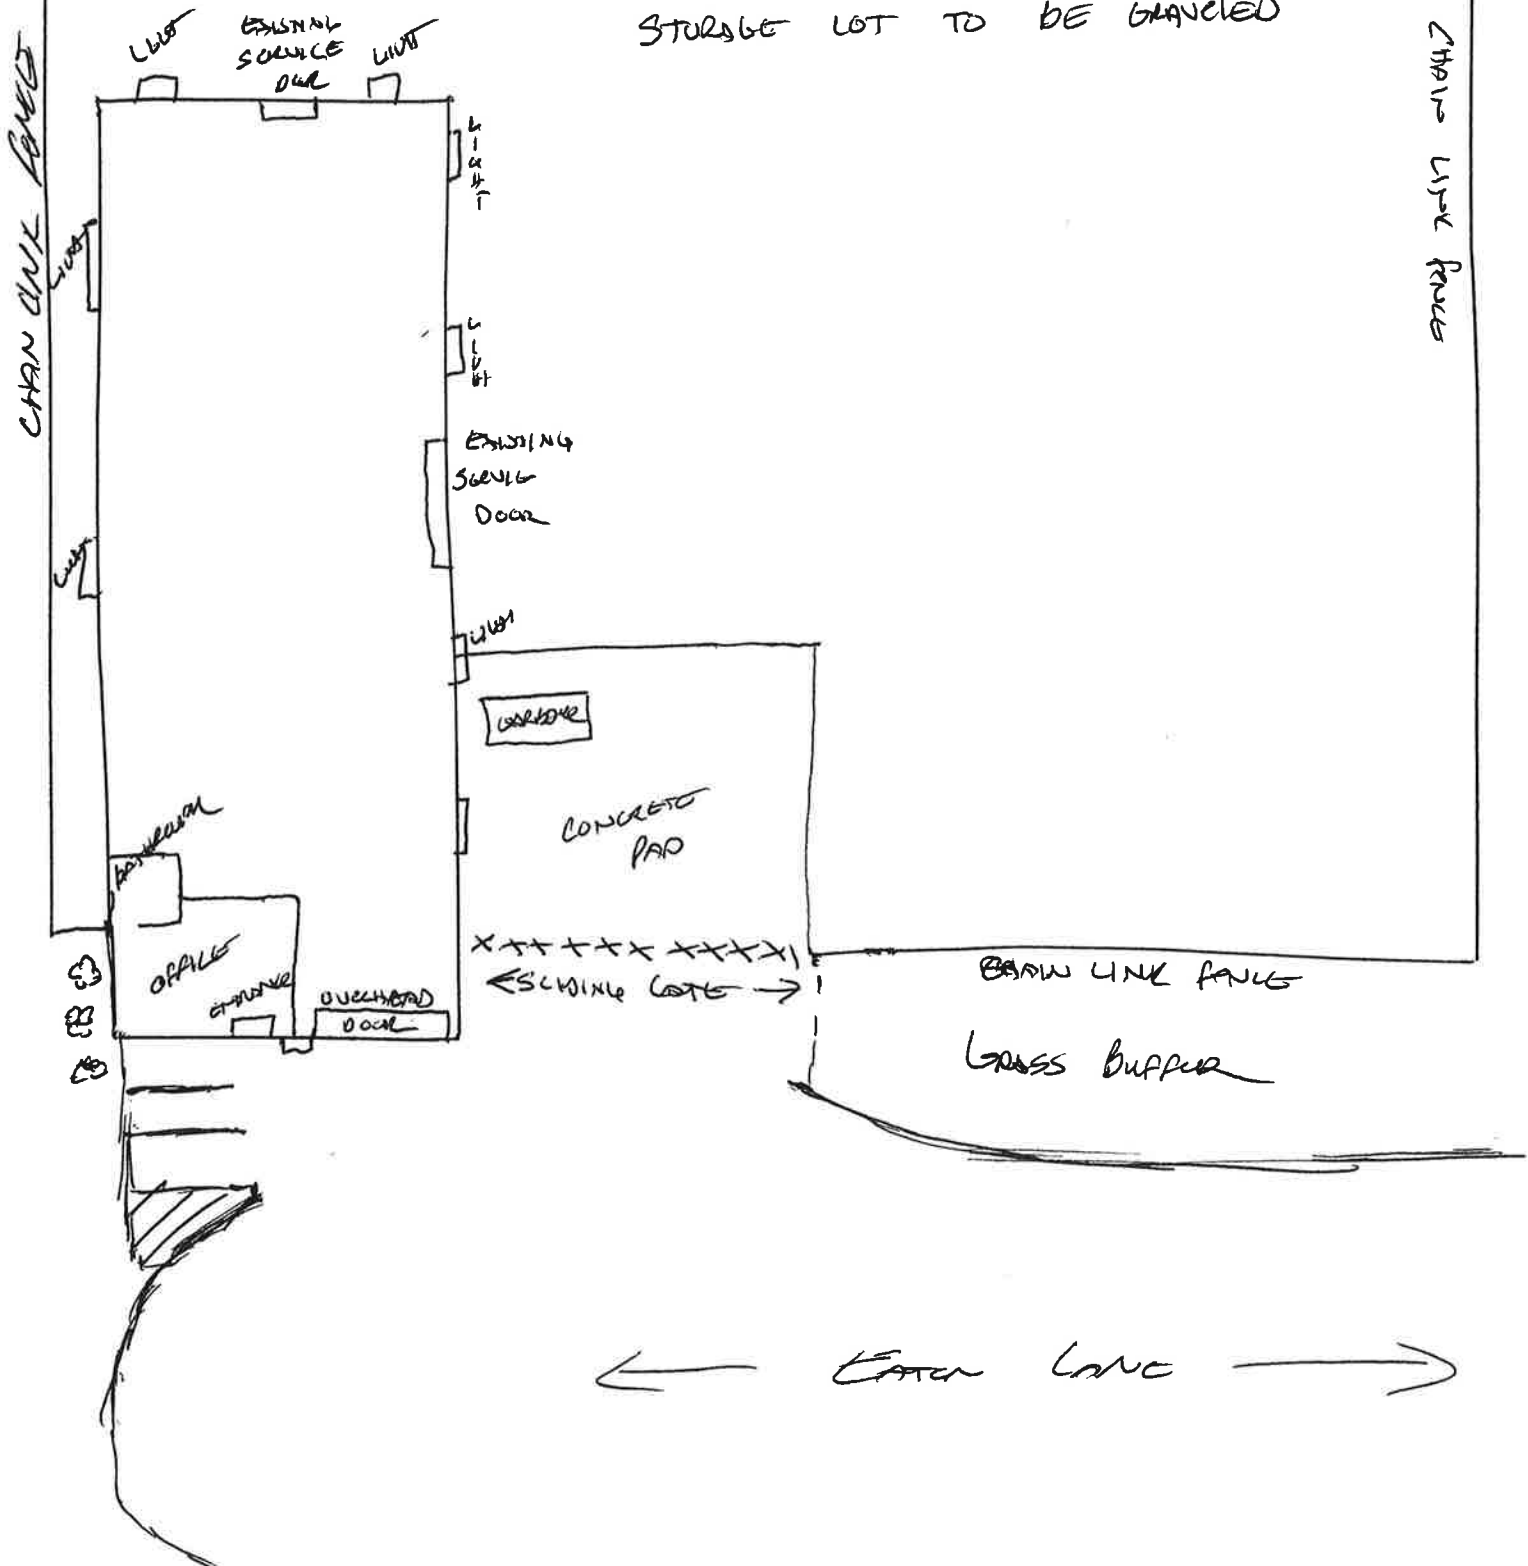 STORAGE LOT TO BE GRAVELED
LIGHT
EXISTING
SERVICE
DOOR
LIGHT
CHAIN LINK FENCE
CHAIN LINK FENCE
LIGHT
LIGHT
LIGHT
EXISTING
SERVICE
DOOR
LIGHT
LIGHT
GARBAGE
CONCRETE
PAD
BATHROOM
OFFICE
ENTRANCE
OVERHEAD
DOOR
SLIDING GATE
CHAIN LINK FENCE
GRASS BUFFER
EATON LANE